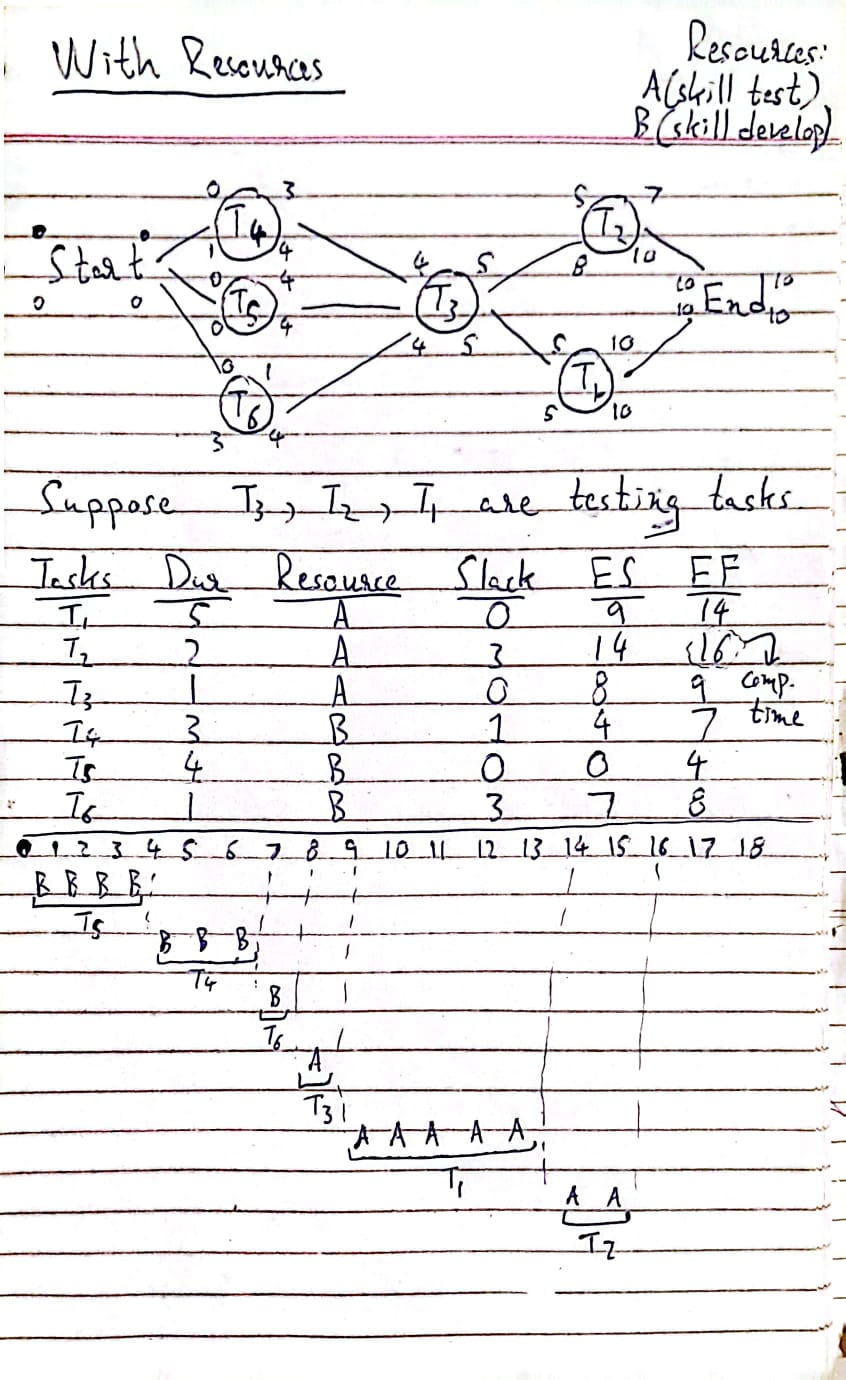 With Resources
Resources:
A(skill test)
B(skill develop)
0 3
T4
1 4
Start
0 0
0 4
T5
0 4
0 1
T6
3 4
4 5
T3
4 5
5 7
T2
8 10
10 10
End
10 10
5 10
T1
5 10
Suppose T3, T2, T1 are testing tasks.
Tasks Dur Resource Slack ES EF
T1 5 A 0 9 14
T2 2 A 3 14 16
T3 1 A 0 8 9 comp.
T4 3 B 1 4 7 time
T5 4 B 0 0 4
T6 1 B 3 7 8
0 1 2 3 4 5 6 7 8 9 10 11 12 13 14 15 16 17 18
B B B B
T5
B B B
T4
B
T6
A
T3
A A A A A
T1
A A
T2